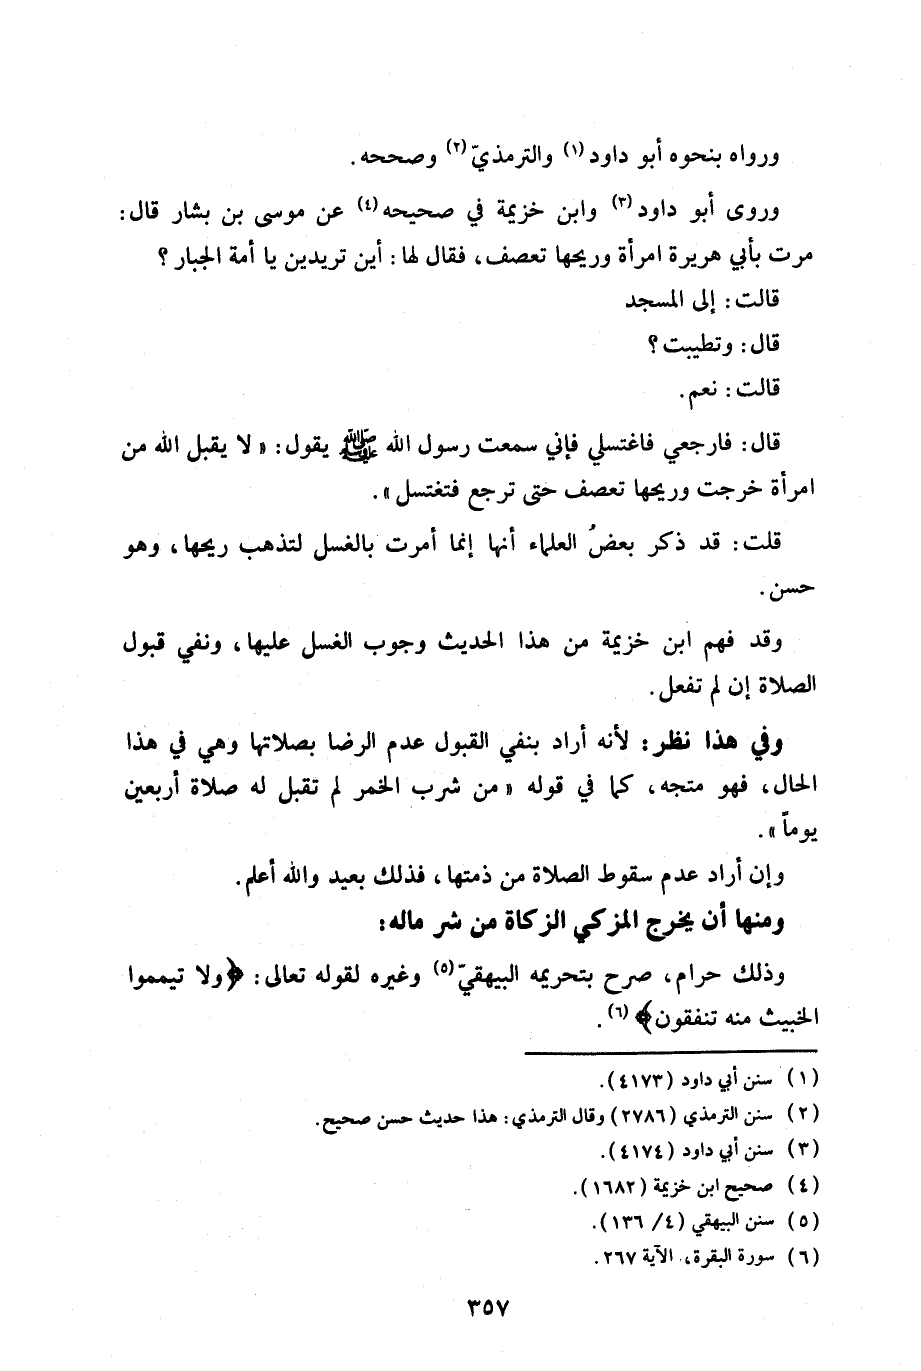 ورواه بنحوه أبو داود (١) والترمذيّ (٢) وصححه.
وروى أبو داود (٣) وابن خزيمة في صحيحه (٤) عن موسى بن بشار قال:
مرت بأبي هريرة امرأة وريحها تعصف، فقال لها: أين تريدين يا أمة الجبار؟
قالت: إلى المسجد
قال: وتطيبت؟
قالت: نعم.
قال: فارجعي فاغتسلي فإني سمعت رسول الله ﷺ يقول: « لا يقبل الله من
امرأة خرجت وريحها تعصف حتى ترجع فتغتسل ».
قلت: قد ذكر بعضُ العلماء أنها إنما أمرت بالغسل لتذهب ريحها، وهو
حسن.
وقد فهم ابن خزيمة من هذا الحديث وجوب الغسل عليها، ونفي قبول
الصلاة إن لم تفعل.
وفي هذا نظر: لأنه أراد بنفي القبول عدم الرضا بصلاتها وهي في هذا
الحال، فهو متجه، كما في قوله « من شرب الخمر لم تقبل له صلاة أربعين
يوماً ».
وإن أراد عدم سقوط الصلاة من ذمتها، فذلك بعيد والله أعلم.
ومنها أن يخرج المزكي الزكاة من شر ماله:
وذلك حرام، صرح بتحريمه البيهقيّ (٥) وغيره لقوله تعالى: ﴿ولا تيمموا
الخبيث منه تنفقون﴾ (٦).
(١) سنن أبي داود (٤١٧٣).
(٢) سنن الترمذي (٢٧٨٦) وقال الترمذي: هذا حديث حسن صحيح.
(٣) سنن أبي داود (٤١٧٤).
(٤) صحيح ابن خزيمة (١٦٨٢).
(٥) سنن البيهقي (٤/ ١٣٦).
(٦) سورة البقرة، الآية ٢٦٧.
٣٥٧